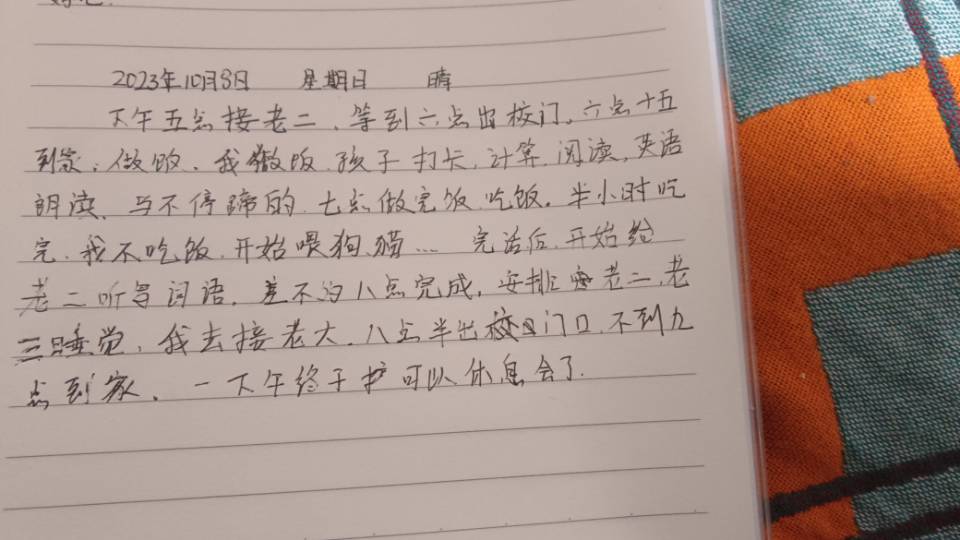 2023年10月8日 星期日 晴
下午五点接老二、等到六点出校门。六点十五
到家,做饭、我做饭.孩子打卡,计算.阅读,英语
朗读、写不停蹄的.七点做完饭.吃饭。半小时吃
完.我不吃饭.开始喂狗.猫... 完活后.开始给
老二听写词语.差不多八点完成,安排 老二,老
三睡觉,我去接老大.八点半出校门口.不到九
点到家.一下午终于 可以休息会了.